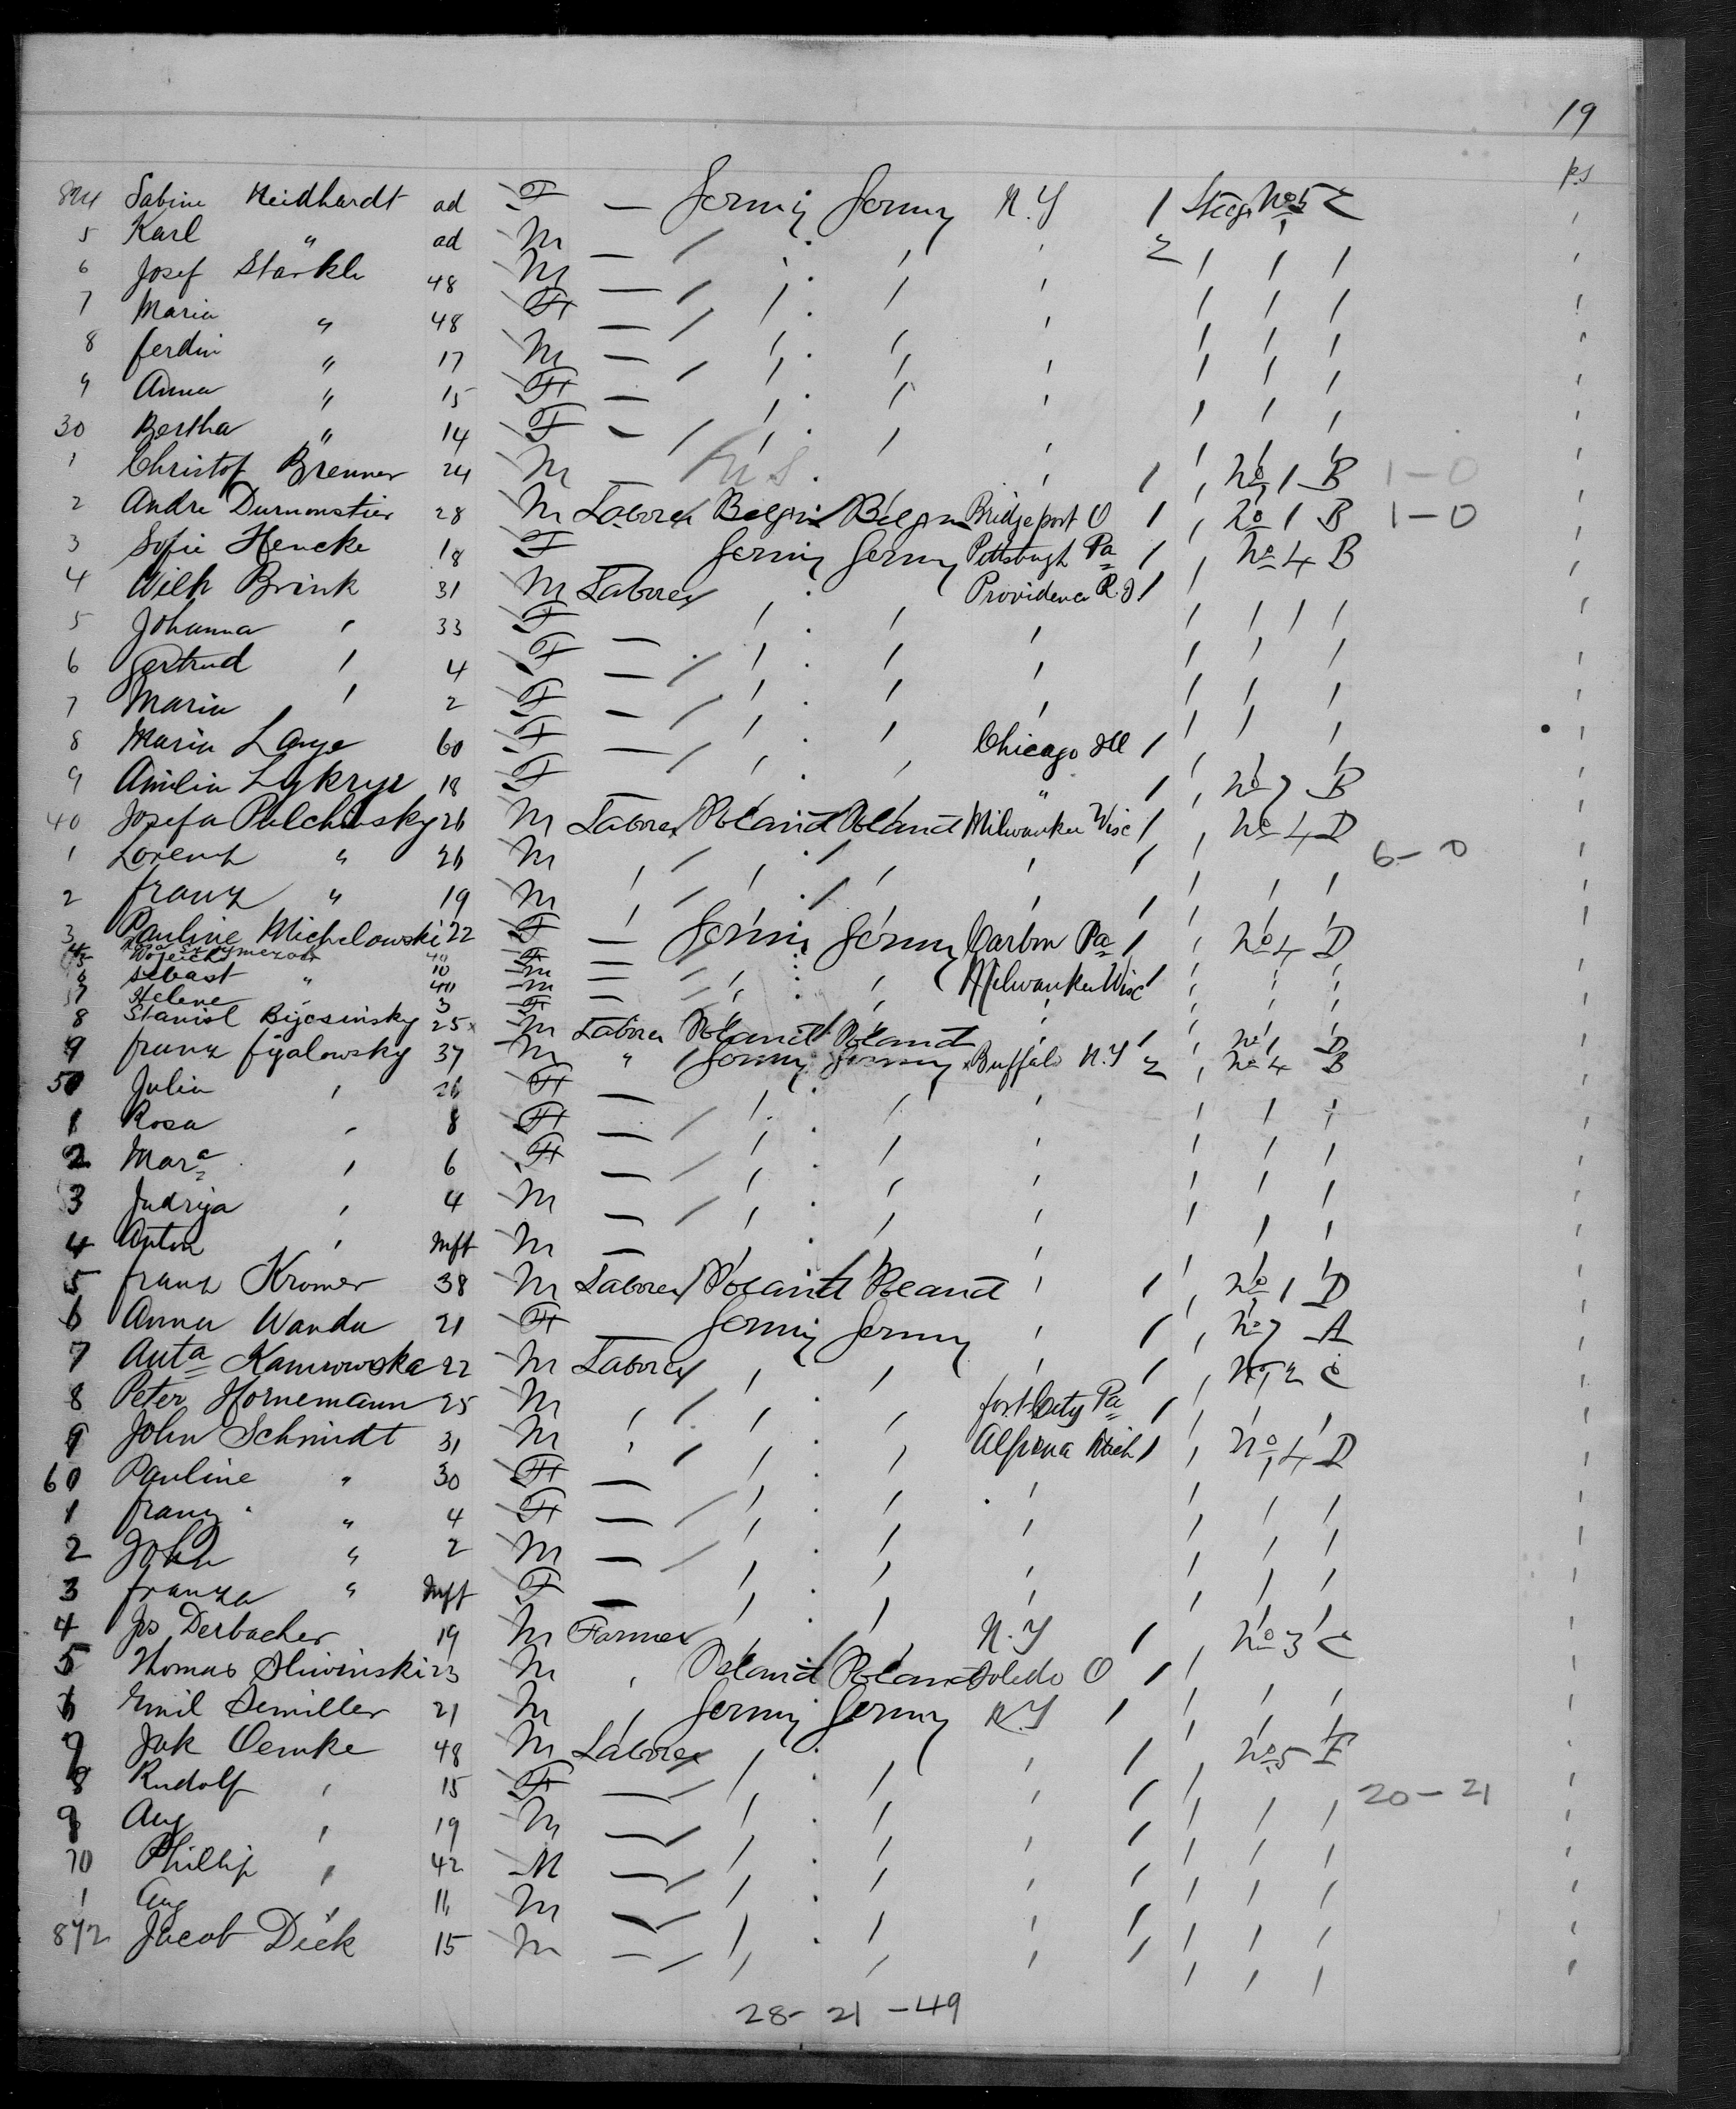 19
ps
824 Sabine Neidhardt ad F — Germy Germy N.Y / Steeg No 5 C /
5 Karl " ad M — / ' / ' 2 / / / /
6 Josef Starkle 48 M — / / / ' / / / /
7 Maria " 48 F — / / / ' / / / /
8 ferdin " 17 M — / / / ' / / / /
9 Anna " 15 F — / / / ' / / / /
30 Bertha " 14 F — / / / ' / / / /
1 Christof Brenner 24 M — U S ' / / No 1 B 1-0 /
2 Andre Dumonstier 28 M Laborer Belgin Belgin Bridgeport O / / No 1 B 1-0 /
3 Sofie Hencke 18 F Germy Germy Pittsburgh Pa / / No 4 B /
4 Wilh Brink 31 M Laborer Providence R.I. / /
5 Johanna ' 33 F — / / ' / / / /
6 Gertrud ' 4 F — / / / ' / / / /
7 Maria ' 2 F — / / / ' / / / /
8 Maria Lange 60 F — / / / Chicago Ill / / / / /
9 Amilia 18 F — / / " / / No 7 B /
40 Josefa Palchinsky 26 M Laborer Poland Poland Milwaukee Wisc / / No 4 D /
1 Lorenz " 26 M ' / / / ' / / / / 6-0 /
2 franz " 19 M ' / / / ' / / / / /
3 Pauline Michelowski 22 F — Germy Germy Carbon Pa / / No 4 D /
Milwaukee Wisc /
6 Sebast " 10 M —
7 Helene 3 F —
8 Stanisl Bijosinsky 25 M Laborer Poland Poland ' / / No 1 D /
9 franz fijalowsky 37 M " Germy Germy Buffalo N.Y 2 / No 4 B /
50 Julia ' 26 F — / / ' / / / /
1 Rosa ' 8 F — / / / ' / / / /
2 Mara ' 6 F — / / / ' / / / /
3 Judrya ' 4 M — / / / ' / / / /
4 Anton ' Inft M — / / ' / / / /
5 franz Kromer 38 M Laborer Poland Poland ' / / No 1 D /
6 Anna Wanda 21 F — Germy Germy ' / / No 7 A /
7 Anta Kamrowska 22 M Laborer / / ' / / No 2 C /
8 Peter Hornemann 25 M ' / / / City Pa / / / / /
9 John Schmidt 31 M ' / / / Alpena Mich / / No 4 D /
60 Pauline " 30 F — / / ' / / / /
1 franz " 4 F — / / / ' / / / /
2 John " 2 M — / / / ' / / / /
3 franza " Inft F — / / ' / / / /
4 Js Derbacher 19 M Farmer / / N.Y / / No 3 C /
5 Thomas Sliwinski 23 M ' Poland Poland Toledo O / / / / /
6 Emil Semiller 21 M ' Germy Germy N.Y / / / / /
7 Jak Oemke 48 M Laborer / / ' / / No 5 E /
8 Rudolf ' 15 F — / / ' / / / / 20-21 /
9 Aug ' 19 M — / / / ' / / / / /
70 Phillip ' 42 M — / / / ' / / / / /
1 Aug ' 11 M — / / / ' / / / / /
872 Jacob Dick 15 M — / / / ' / / / / /
28- 21 -49